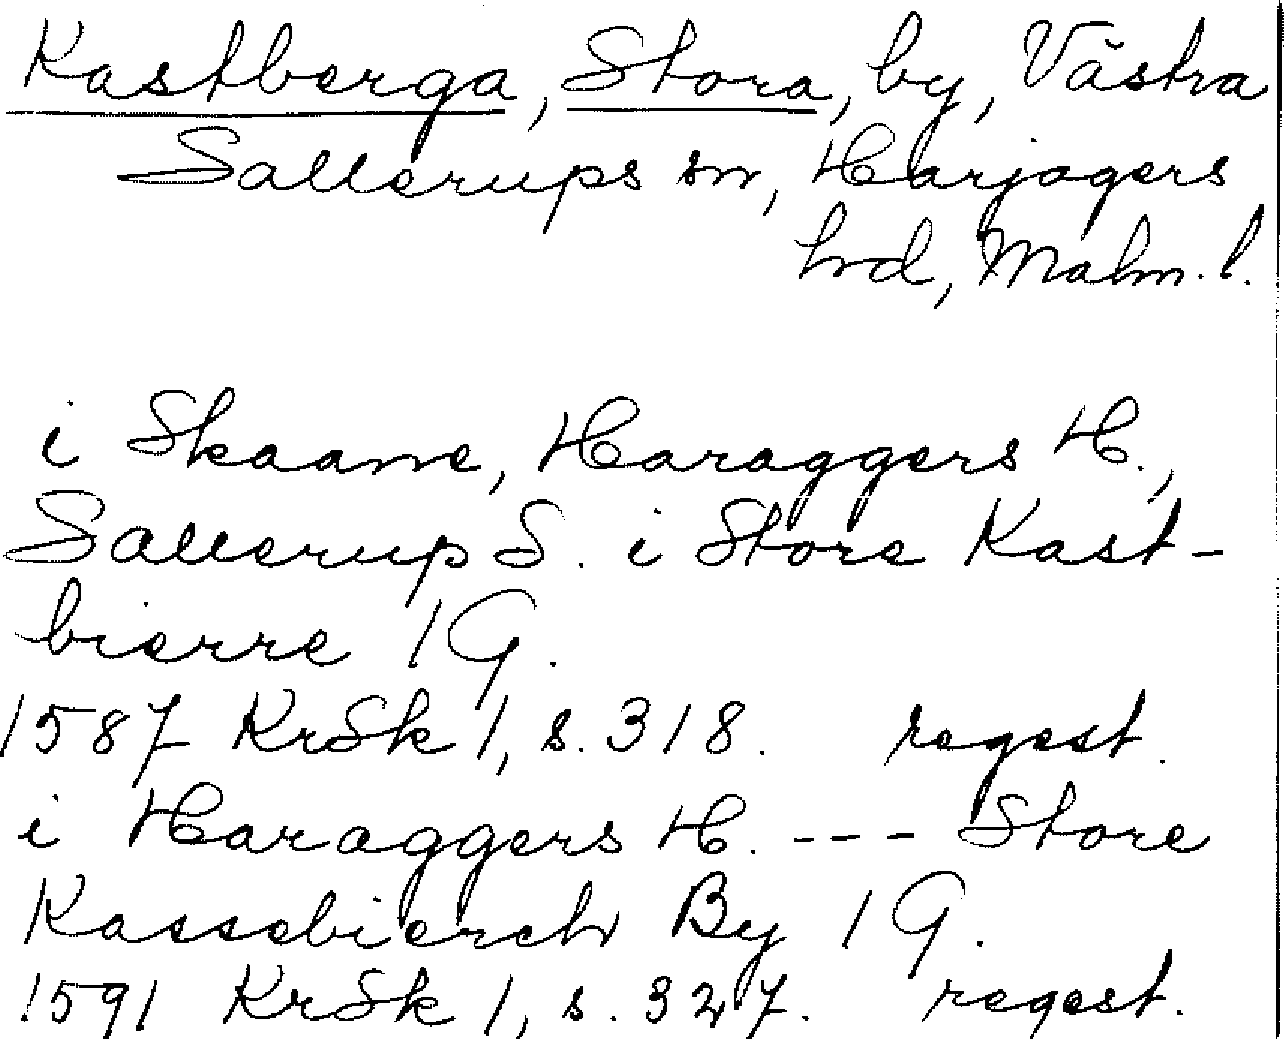 Kastberga, Stora, by, Västra
Sallerups sn, Harjagers
hrd, Malm. l.
i Skaane, Haraggers H.,
Sallerup S. i Store Kast-
bierre 1 G.
1587 KrSk 1, s. 318. regest.
i Haraggers H. --- Store
Kassebierch By 1 G.
1591 KrSk 1, s. 327. regest.